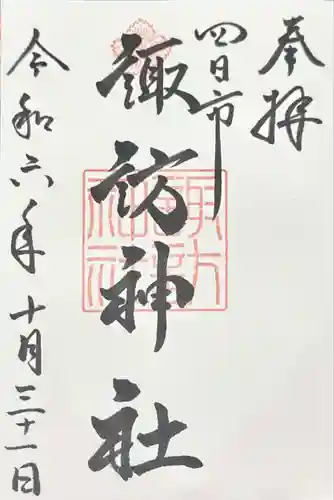 奉拝
四日市
諏訪神社
令和六年十月三十一日
諏訪神社